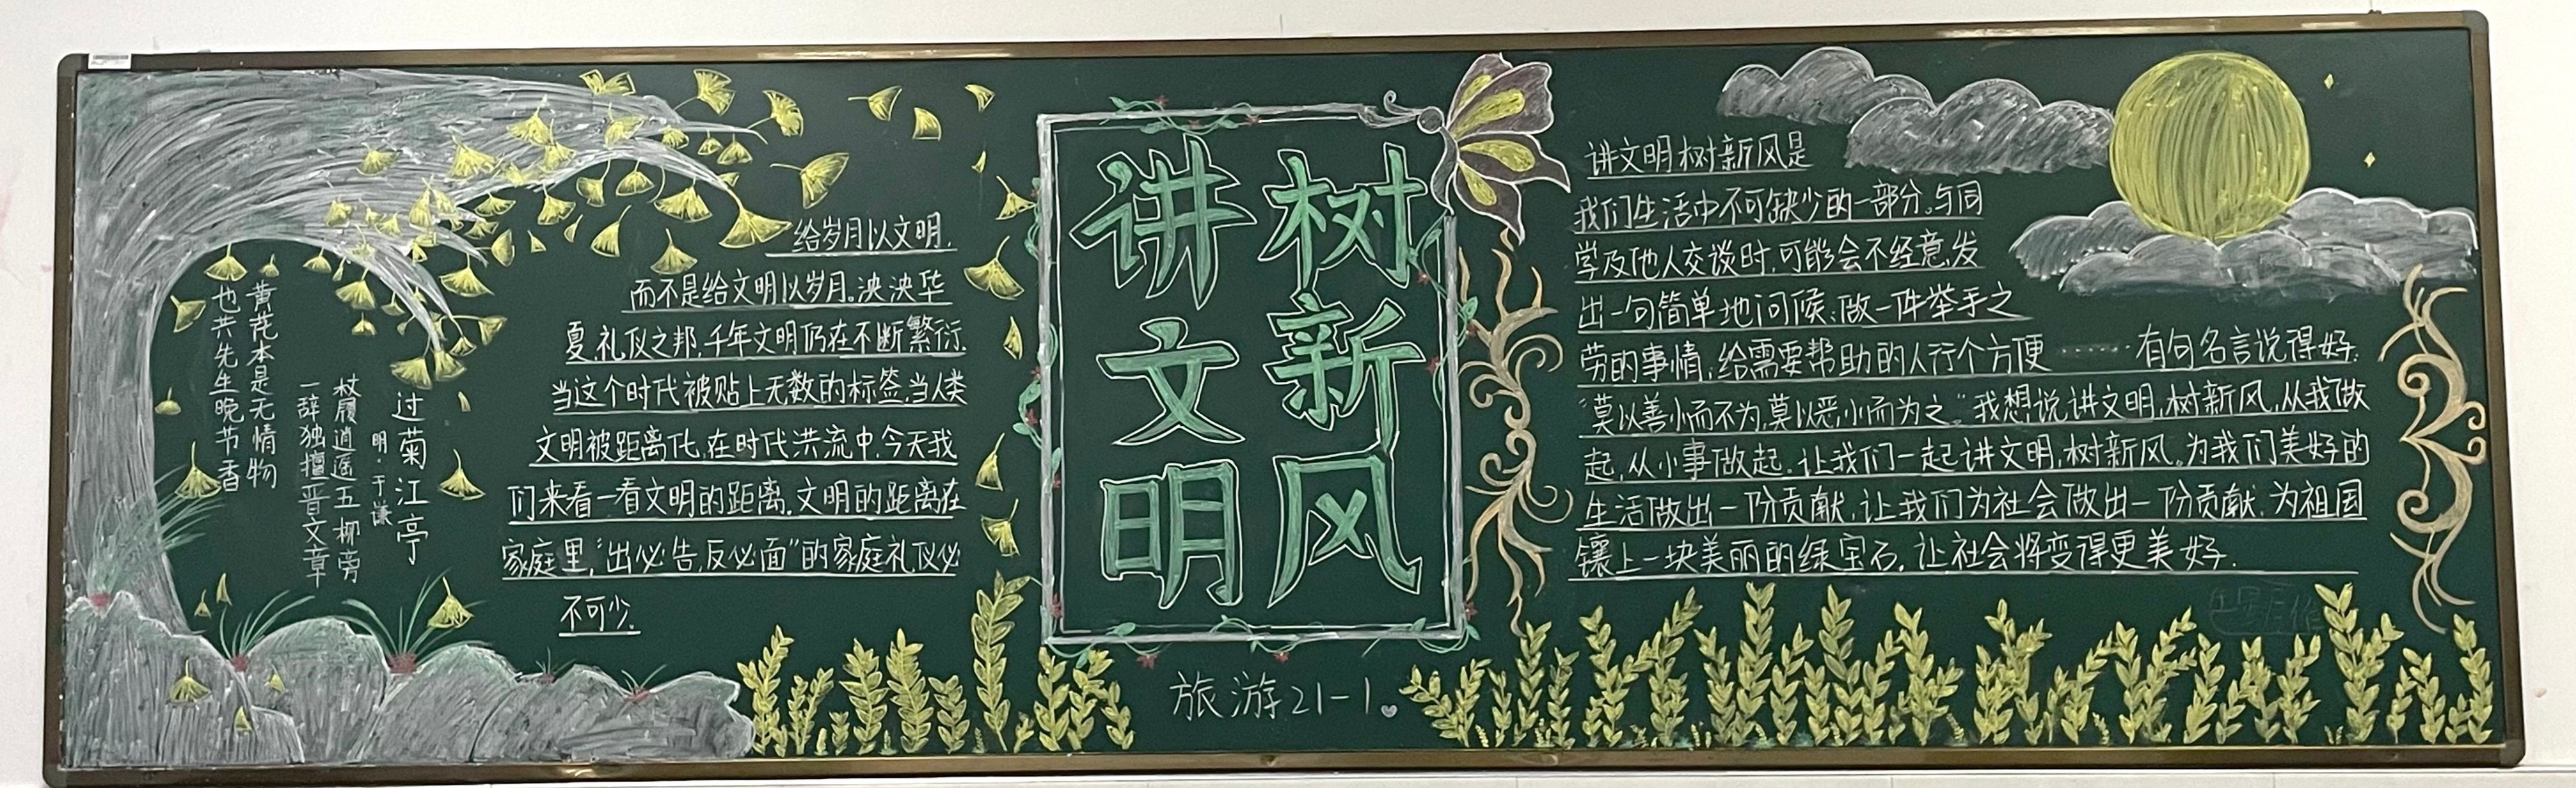 过菊江亭
明·于谦
杖履逍遥五柳旁
一辞独擅晋文章
黄花本是无情物
也共先生晚节香
给岁月以文明，
而不是给文明以岁月。泱泱华
夏，礼仪之邦，千年文明仍在不断繁衍。
当这个时代被贴上无数的标签，当人类
文明被距离化，在时代洪流中，今天我
们来看一看文明的距离。文明的距离在
家庭里，“出必告，反必面”的家庭礼仪必
不可少。
讲文明
树新风
旅游21-1。
讲文明树新风是
我们生活中不可缺少的一部分。与同
学及他人交谈时，可能会不经意，发
出一句简单地问候；做一件举手之
劳的事情，给需要帮助的人行个方便……有句名言说得好：
“莫以善小而不为，莫以恶小而为之。”我想说讲文明，树新风，从我做
起，从小事做起。让我们一起讲文明，树新风。为我们美好的
生活做出一份贡献，让我们为社会做出一份贡献，为祖国
镶上一块美丽的绿宝石。让社会将变得更美好。